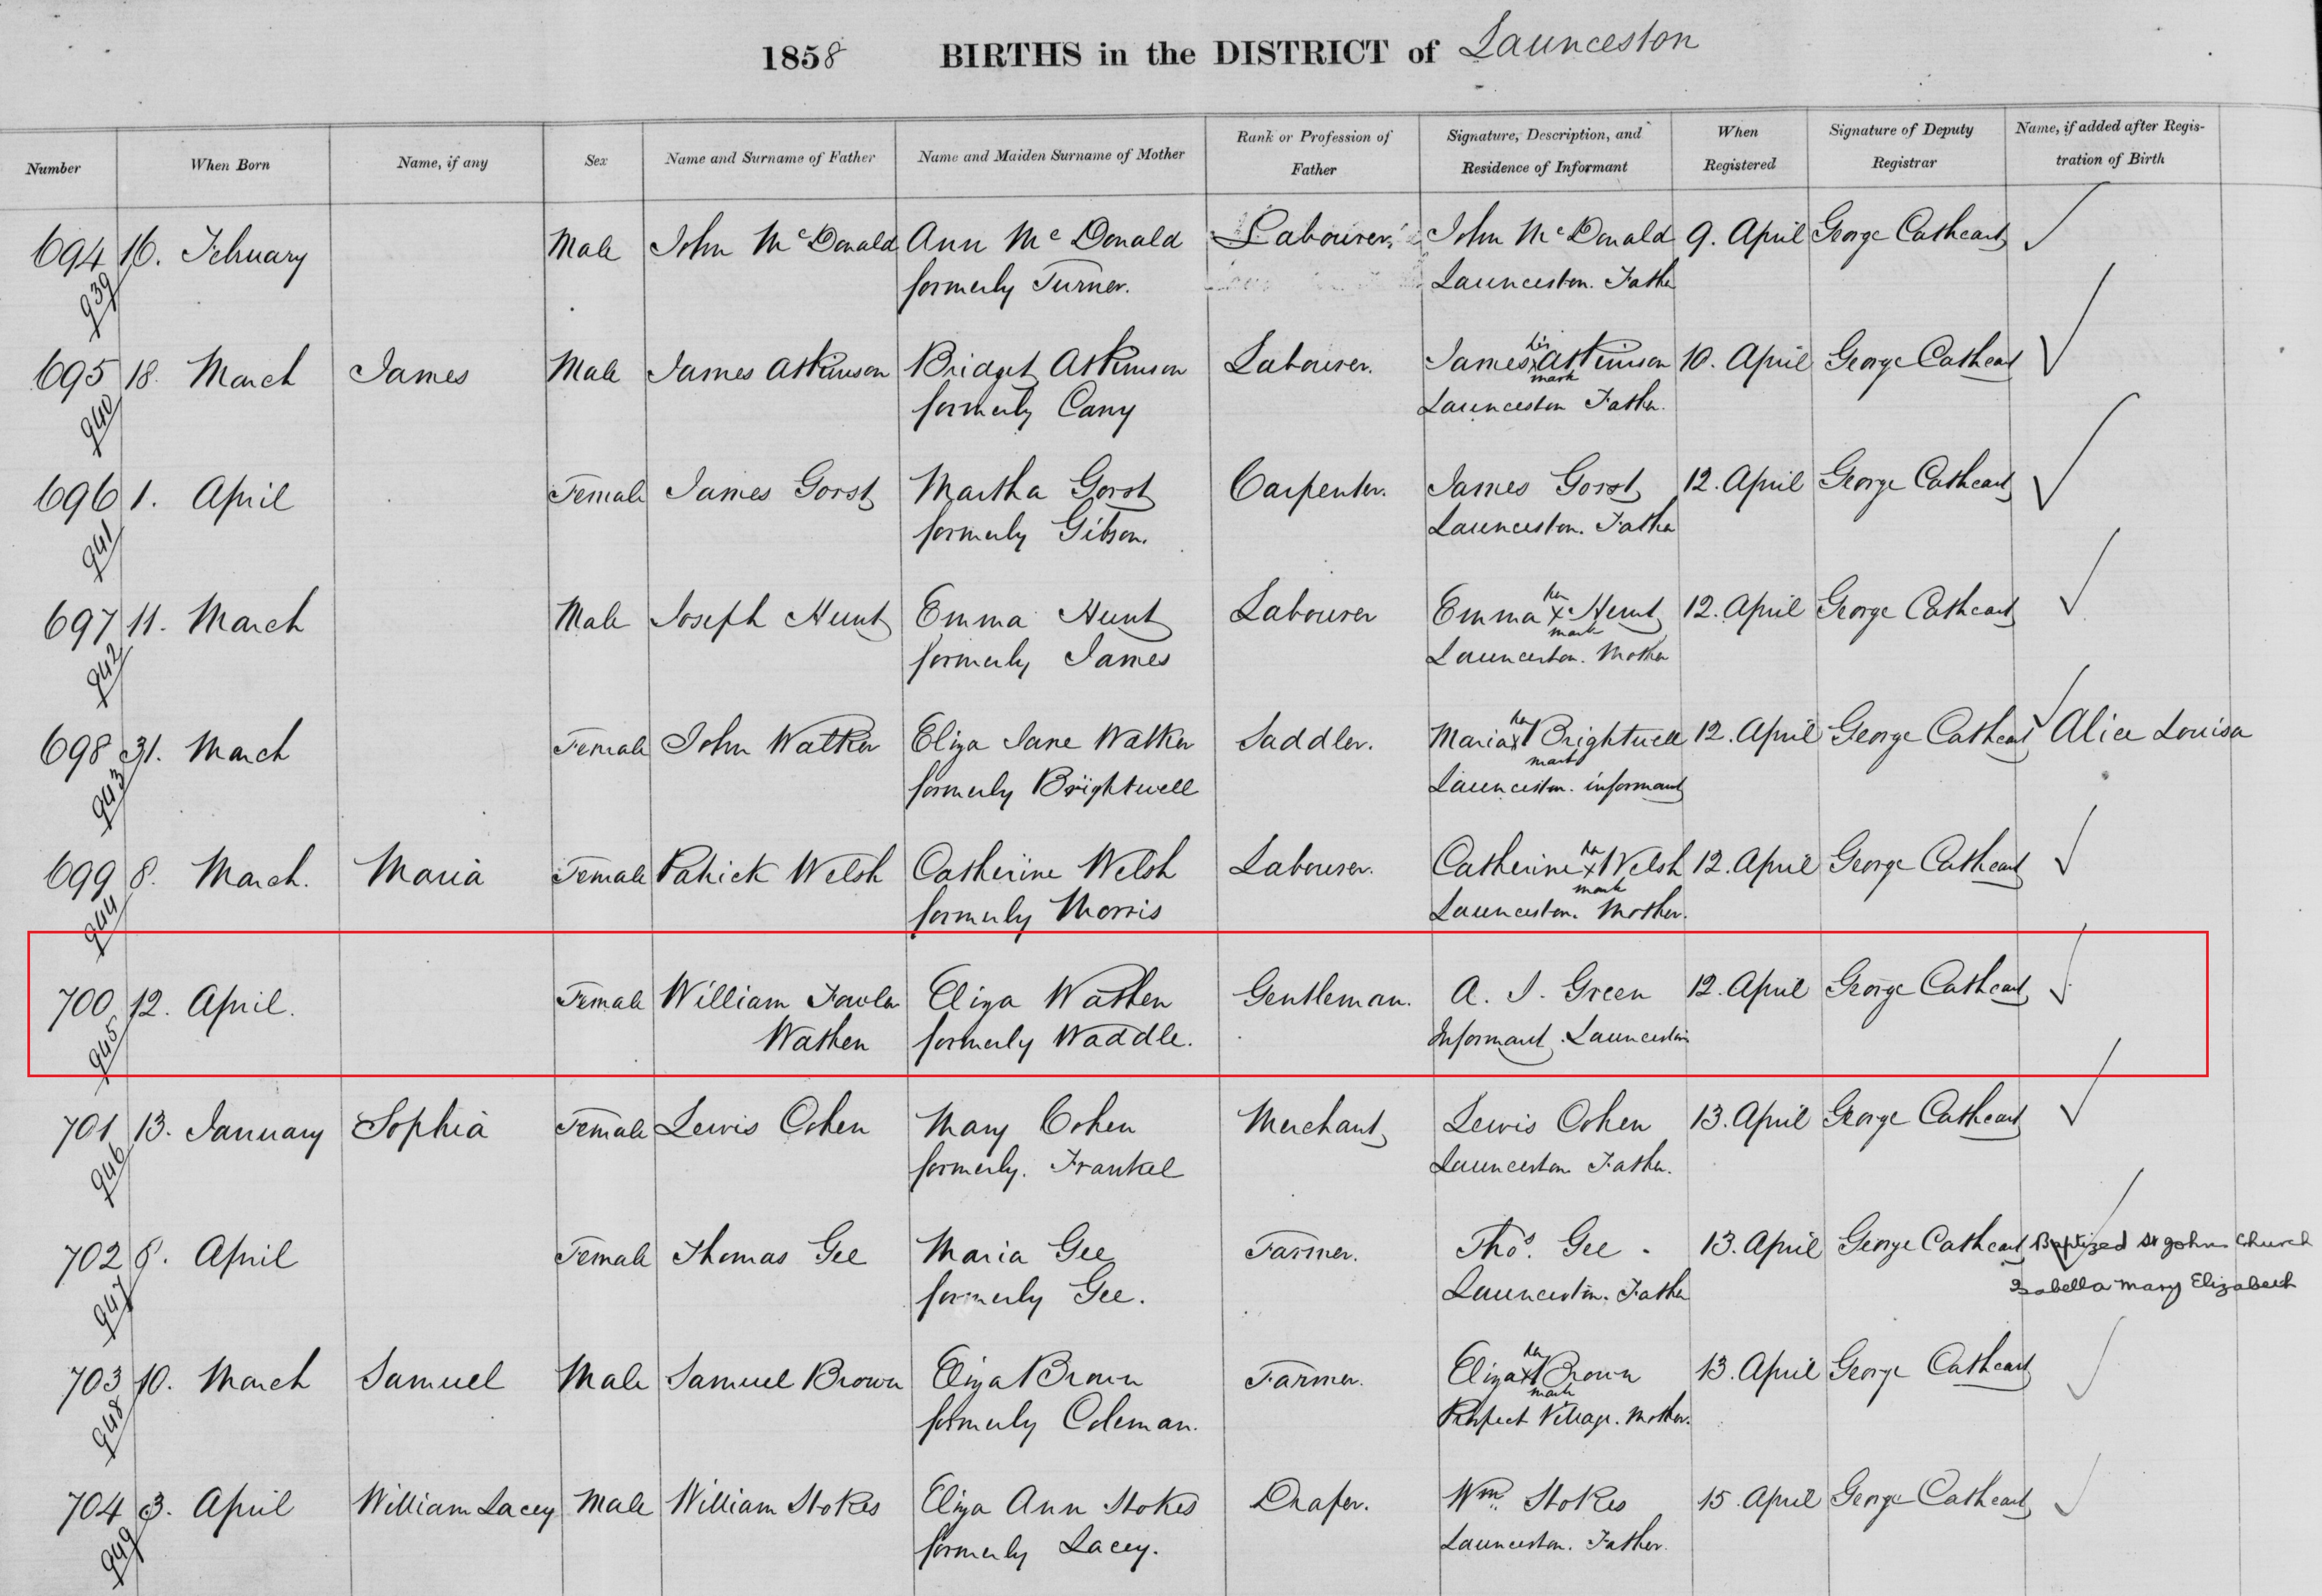 1858 BIRTHS in the DISTRICT of Launceston
Number When Born Name, if any Sex Name and Surname of Father Name and Maiden Surname of Mother Rank or Profession of Father Signature, Description, and Residence of Informant When Registered Signature of Deputy Registrar Name, if added after Registration of Birth
694 16. February Male John McDonald Ann McDonald Labourer. John McDonald 9. April George Cathcart
939 formerly Turner. Launceston. Father
695 18. March James Male James Atkinson Bridget Atkinson Labourer. James his x mark Atkinson 10. April George Cathcart
940 formerly Cany Launceston Father.
696 1. April Female James Gorst Martha Gorst Carpenter. James Gorst 12. April George Cathcart
941 formerly Gibson. Launceston. Father
697 11. March Male Joseph Hunt Emma Hunt Labourer Emma her x mark Hunt 12. April George Cathcart
942 formerly James Launceston. Mother
698 31. March Female John Walker Eliza Jane Walker Saddler. Maria her x mark Brightwell 12. April George Cathcart Alice Louisa
943 formerly Brightwell Launceston. informant
699 8. March. Maria Female Patrick Welsh Catherine Welsh Labourer. Catherine her x mark Welsh 12. April George Cathcart
944 formerly Morris Launceston. Mother.
700 12. April. Female William Fowler Eliza Wathen Gentleman. A. J. Green 12. April George Cathcart
945 Wathen formerly Waddle. Informant. Launceston
701 13. January Sophia Female Lewis Cohen Mary Cohen Merchant Lewis Cohen 13. April George Cathcart
946 formerly. Frankel Launceston Father.
702 8. April Female Thomas Gee Maria Gee Farmer. Thos. Gee. 13. April George Cathcart Baptized St Johns Church
947 formerly Gee. Launceston. Father Isabella Mary Elizabeth
703 10. March Samuel Male Samuel Brown Eliza Brown Farmer. Eliza her x mark Brown 13. April George Cathcart
948 formerly Coleman. Village. Mother.
704 3. April William Lacey Male William Stokes Eliza Ann Stokes Draper. Wm. Stokes 15. April George Cathcart
949 formerly Lacey. Launceston. Father.